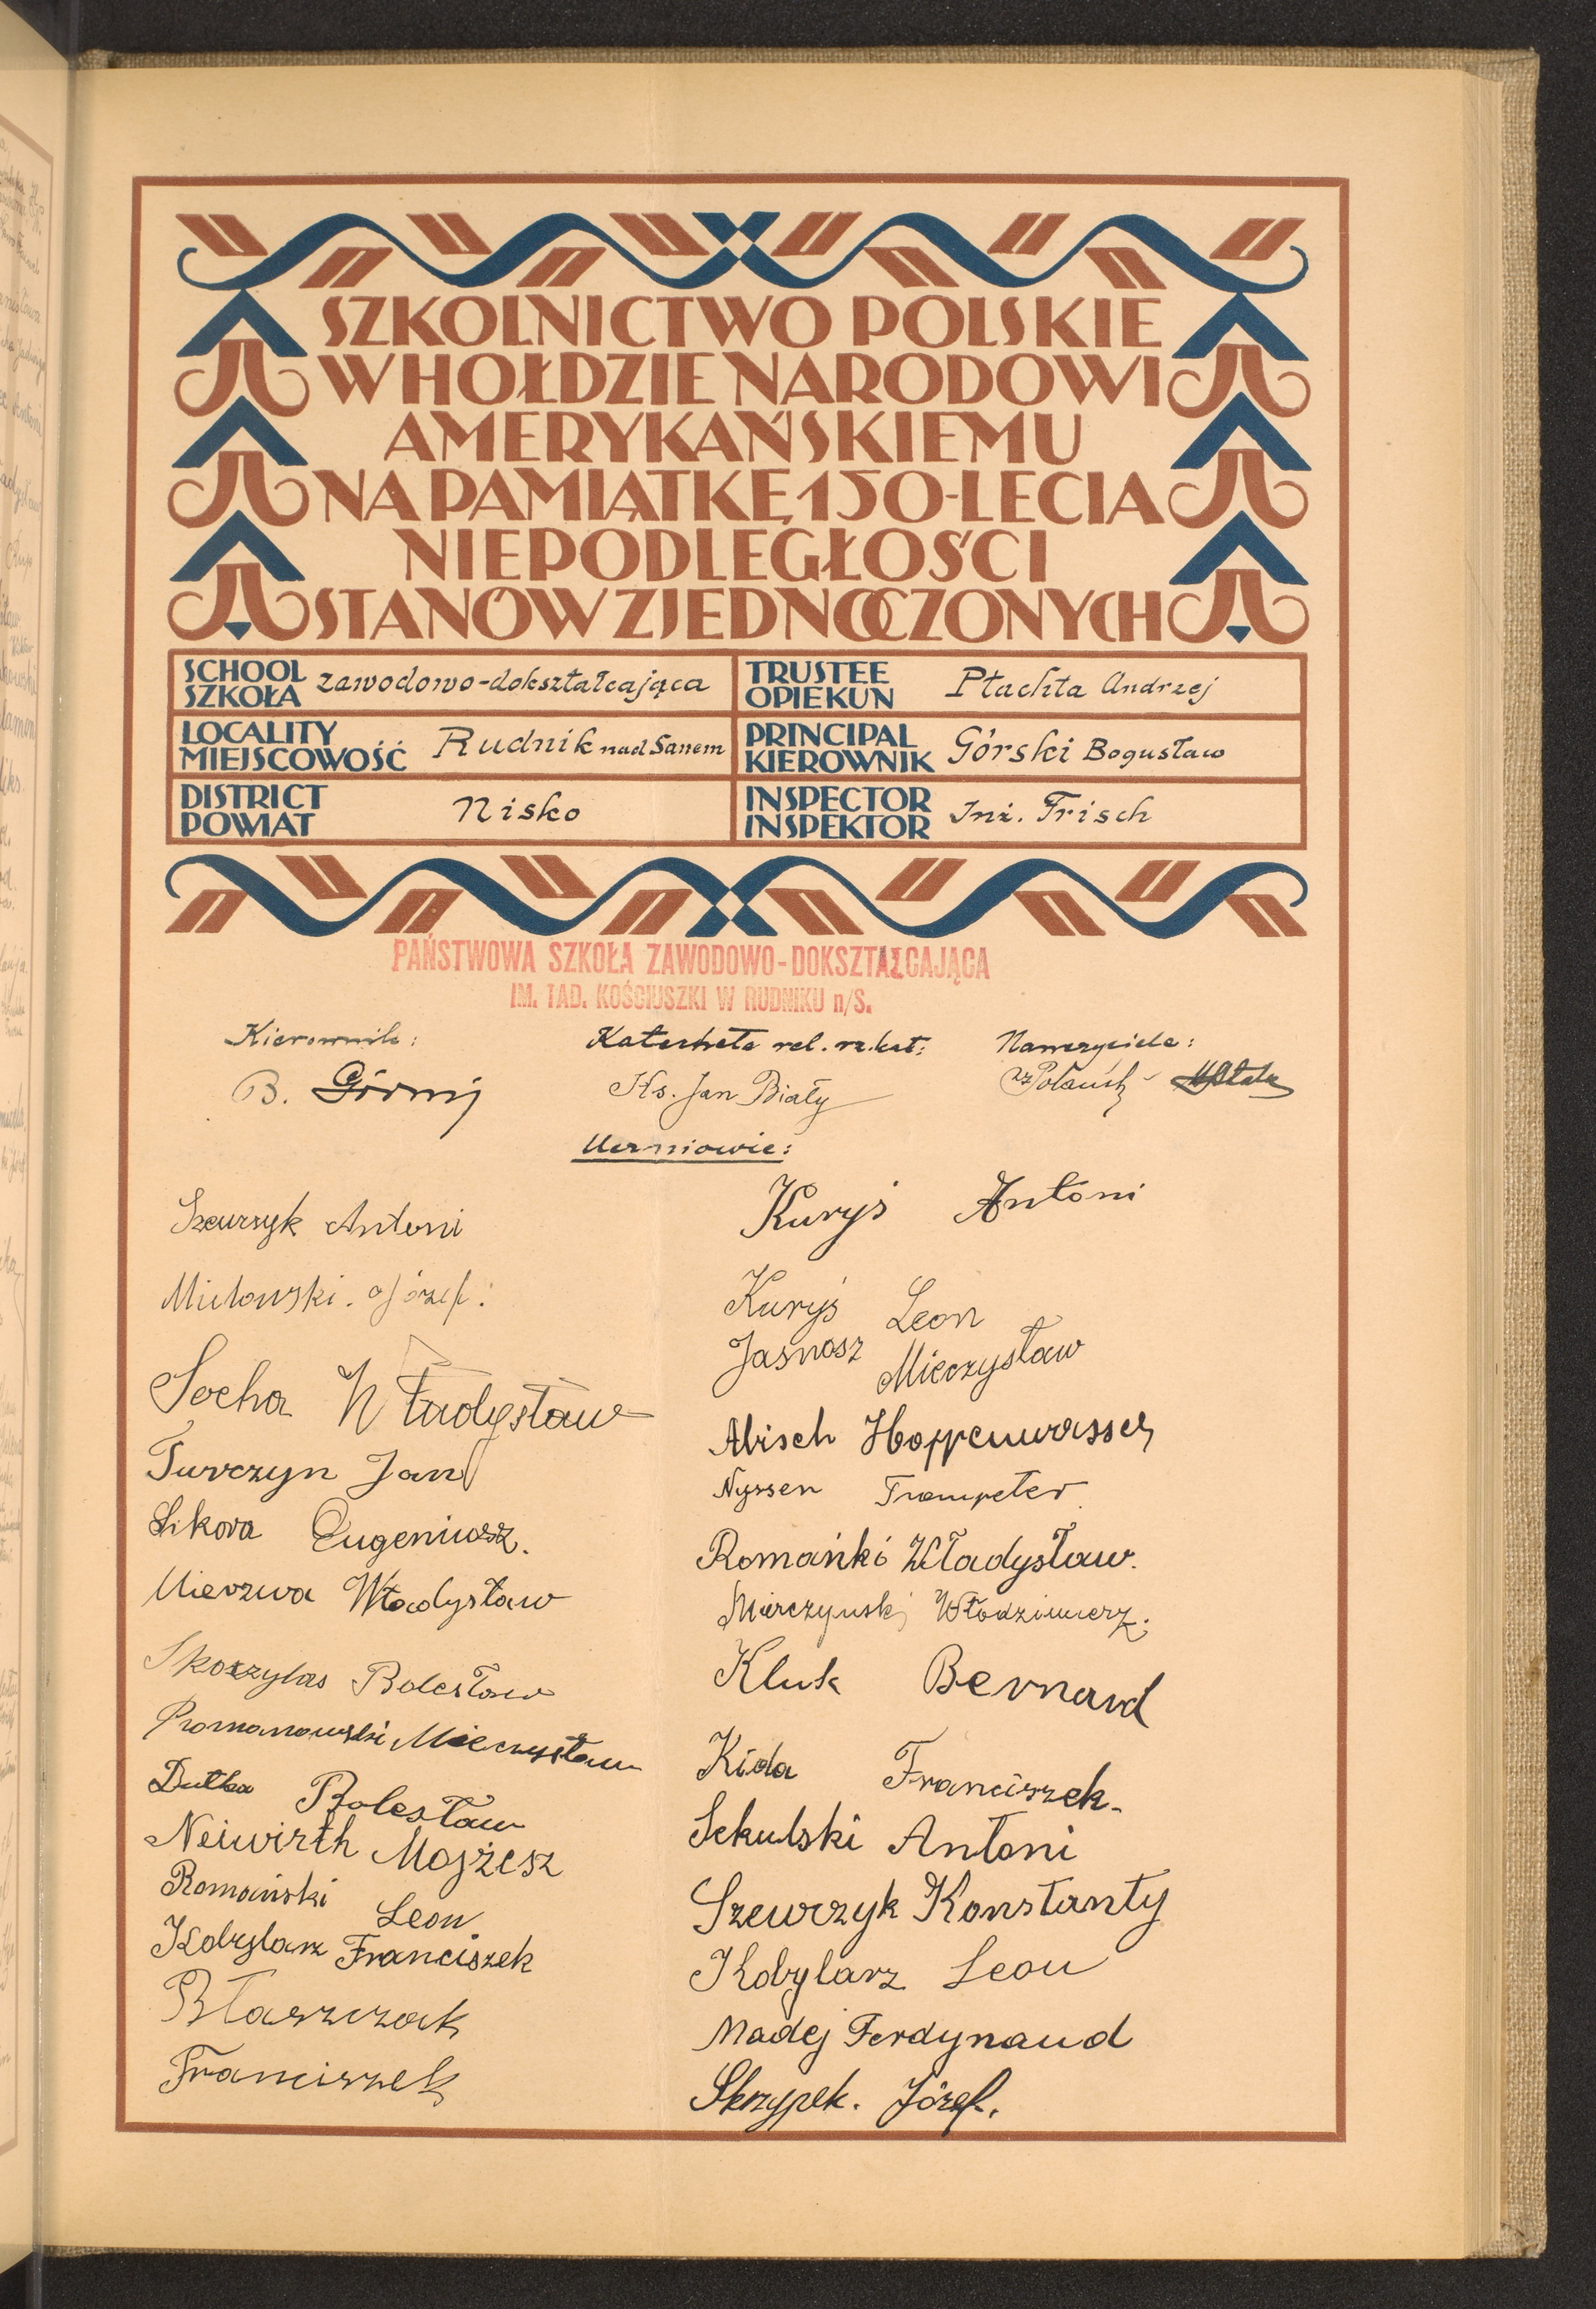 SZKOLNICTWO POLSKIE
W HOŁDZIE NARODOWI
AMERYKAŃSKIEMU
NA PAMIĄTKĘ 150-LECIA
NIEPODLEGŁOŚCI
STANÓW ZJEDNOCZONYCH
SCHOOL
SZKOŁA zawodowo-dokształcająca
TRUSTEE
OPIEKUN Płachta Andrzej
LOCALITY
MIEJSCOWOŚĆ Rudnik nad Sanem
PRINCIPAL
KIEROWNIK Górski Bogusław
DISTRICT
POWIAT Nisko
INSPECTOR
INSPEKTOR Inż. Frisch
PAŃSTWOWA SZKOŁA ZAWODOWO-DOKSZTAŁCAJĄCA
IM. TAD. KOŚCIUSZKI W RUDNIKU n/S.
Kierownik:
B. Górski
Katecheta rel. rz. kat:
Ks. Jan Biały
Nauczyciele:
Uczniowie:
Szewrzyk Antoni
Józef.
Socha Władysław
Turczyn Jan
Sikora Eugeniusz.
Mierzwa Władysław
Skoczylas Bolesław
Romanowski Mieczysław
Dutka Bolesław
Neiwirth Mojżesz
Romański Leon
Kobylarz Franciszek
Błaszczak
Franciszek
Kuryś Antoni
Kuryś Leon
Jasnosz Mieczysław
Abisch Hoppenwasser
Nyssen Trompeter
Romański Władysław.
Mierczynski Włodzimierz.
Kluk Bernard
Kida Franciszek.
Sekulski Antoni
Szewrzyk Konstanty
Kobylarz Leon
Madej Ferdynand
Skrzypek. Józef.